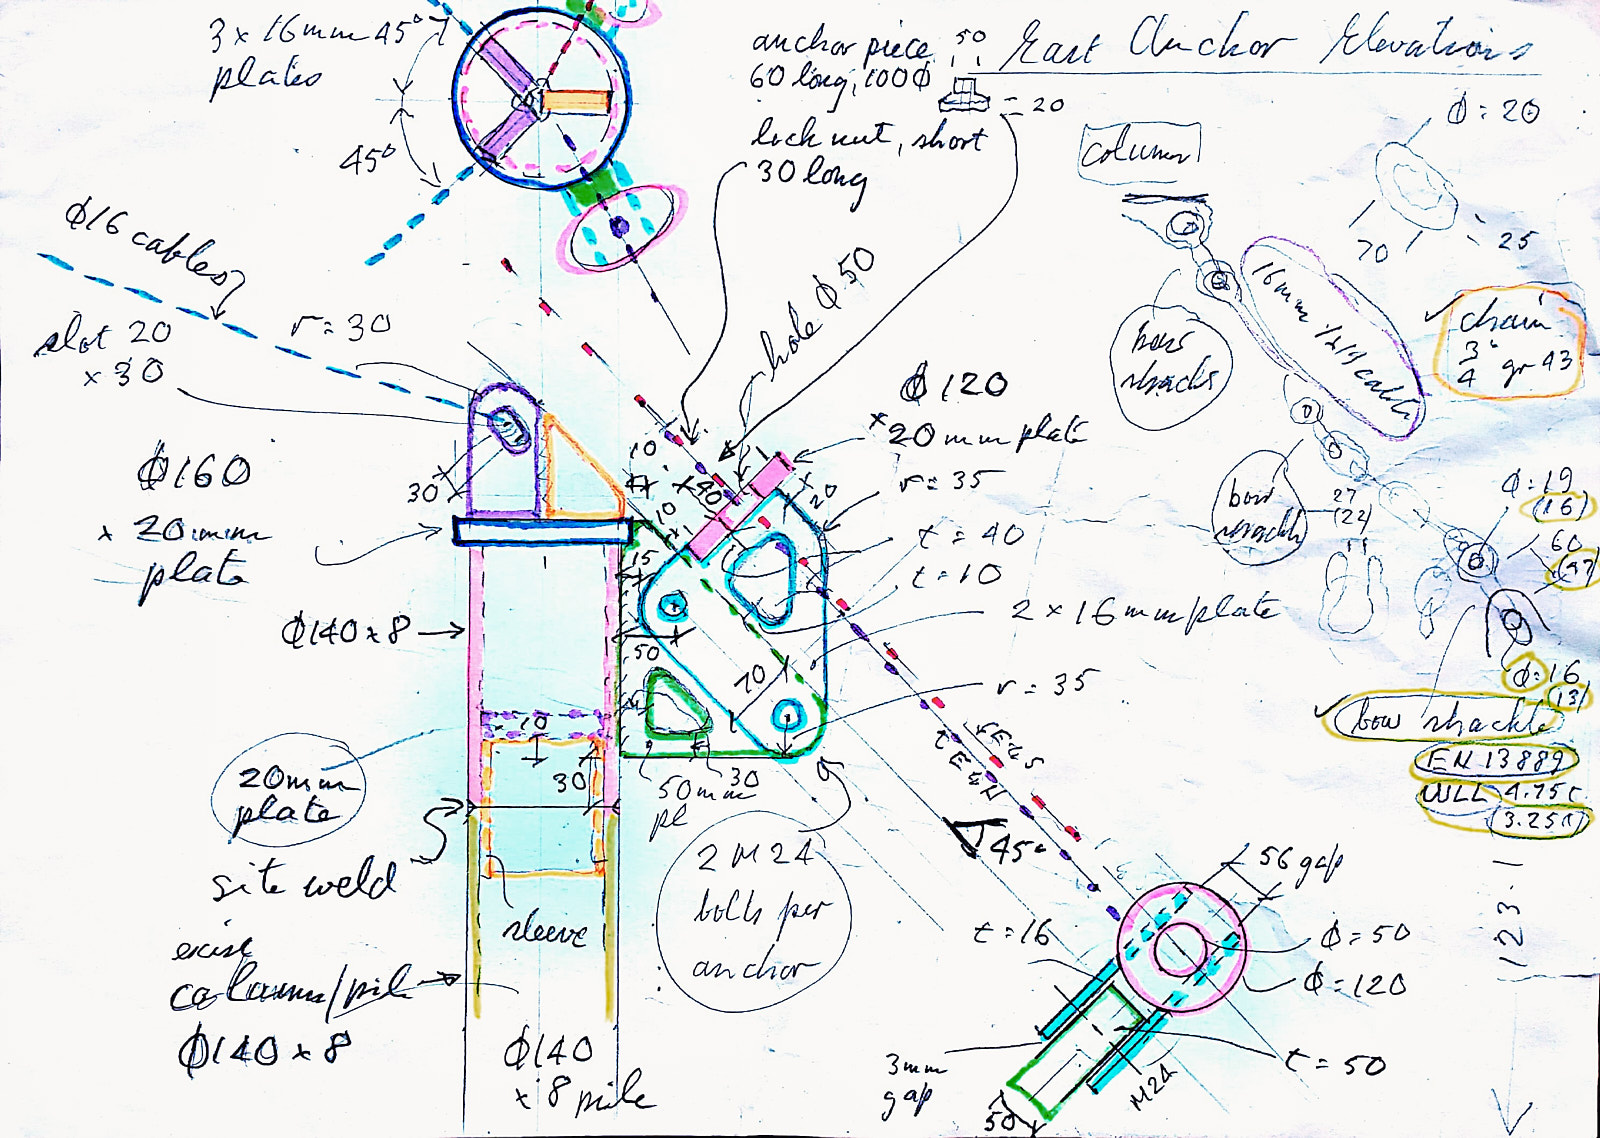 East Anchor Elevations
3 x 16mm 45°
plates
45°
anchor piece
60 long, 100Φ
50
= 20
lock nut, short
30 long
column
Φ: 20
70
25
Φ16 cables
slot 20
x 30
r = 30
hole Φ 50
bow
shackle
16mm 1x19 cable
chain
3
4 gr 43
Φ160
x 20mm
plate
30
10
40
10
Φ120
x 20mm plate
20
r = 35
t = 40
t = 10
2 x 16mm plate
bow
shackle
27
(22)
Φ: 19
(16)
60
Φ140 x 8
15
50
70
r = 35
Φ: 16
(13)
bow shackle
EN 13889
WLL 4.75t
(3.25t)
20mm
plate
10
30
30
50mm
pl
site weld
sleeve
2 M24
bolts per
anchor
45°
exist
column/pile
Φ140 x 8
Φ140
x 8 pile
56 gap
t = 16
Φ = 50
Φ = 120
3mm
gap
t = 50
M24
50
123.1